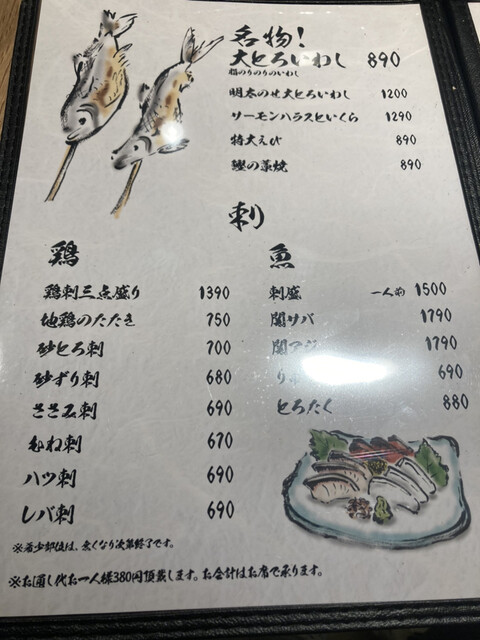 名物!
大とろいわし 890
脂のりのりのいわし
明太のせ大とろいわし 1200
サーモンハラスといくら 1290
特大えび 890
鰹の藁焼 890
刺
鶏
鶏刺三点盛り 1390
地鶏のたたき 750
砂とろ刺 700
砂ずり刺 680
ささみ刺 690
むね刺 670
ハツ刺 690
レバ刺 690
魚
刺盛 一人前 1500
関サバ 1790
関アジ 1790
690
とろたく 880
※希少部位は、無くなり次第終了です。
※お通し代お一人様380円頂戴します。お会計はお席で承ります。